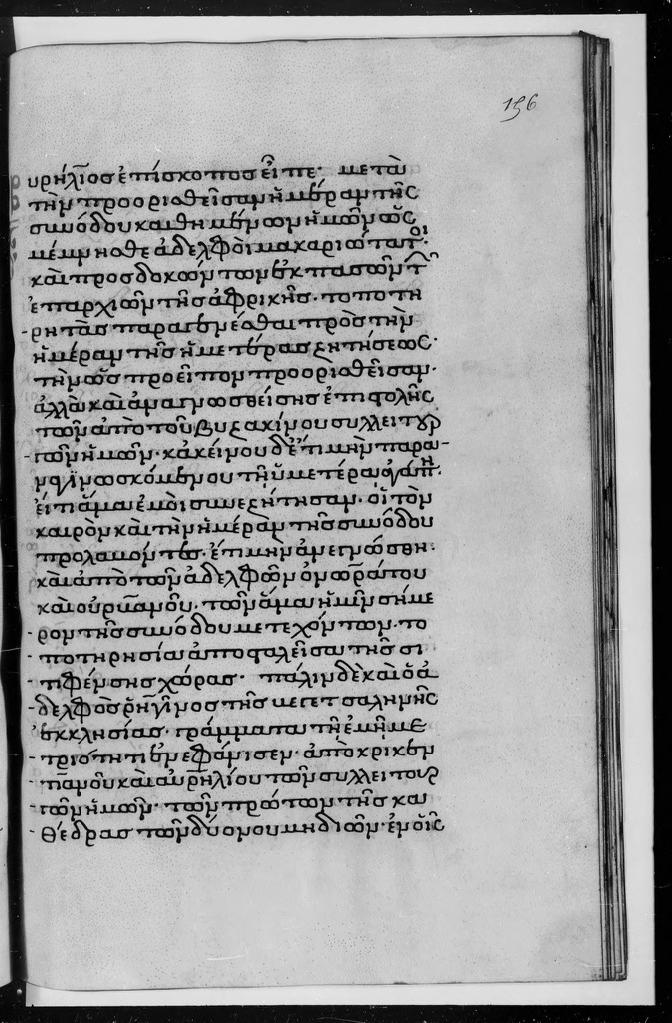 156
υρήλϊος ἐπίσκοπος εἶπε· μετὰ
τὴν προορισθεῖσαν ἡμέραν τῆς
συνόδου καθημένων ἡμῶν ὡς
μέμνησθε ἀδελφοὶ μακαριώτατοι·
καὶ προσδοκώντων ἐκ πασῶν τ
ἐπαρχιῶν τῆς ἀφρικῆς· τοποτη
-ρητὰς παραγενέσθαι πρὸς τὴν
ἡμέραν τῆς ἡμετέρας ζητήσεως·
τὴν ὡς προεῖπον προορισθεῖσαν·
ἀλλὰ καὶ ἀναγνωσθείσης ἐπιστολῆς
τῶν ἀπὸ τοῦ βυζακίνου συλλειτουρ
-γῶν ἡμῶν· κἀκείνου δέ τι μὴν παρα-
ναγινωσκόμενου τῆ ὑμετέρα ἀγάπη·
εἴ τι ἅμα ἐμοὶ συνεζήτησαν· οἳ τὸν
καιρὸν καὶ τὴν ἡμέραν τῆς συνόδου
προλαμόντες· ἔτι μὴν ἀνεγνώσθη·
καὶ ἀπὸ τῶν ἀδελφῶν ὀνωράτου
καὶ οὐρϊανοῦ· τῶν ἅμα ἡμῖν σήμε
-ρον τῆς συνόδου μετεχόντων· το
-ποτηρησία ἀποσταλεῖσα τῆς σι
-τιφένσης χώρας· πάλιν δὲ καὶ ὁ ἀ
δελφὸς ῥηγῖνος τῆς
ἐκκλησίας· γράμματα τῆ ἐμῆ με
-τριότητι ἐνεφάνισεν· ἀπὸ κρικεν
-τϊανοῦ καὶ αὐρηλίου τῶν συλλειτουρ
-γῶν ἡμῶν· τῶν πρώτων τῆς κα
-θέδρας τῶν δύο νουμηδιῶν· ἐν οἷς